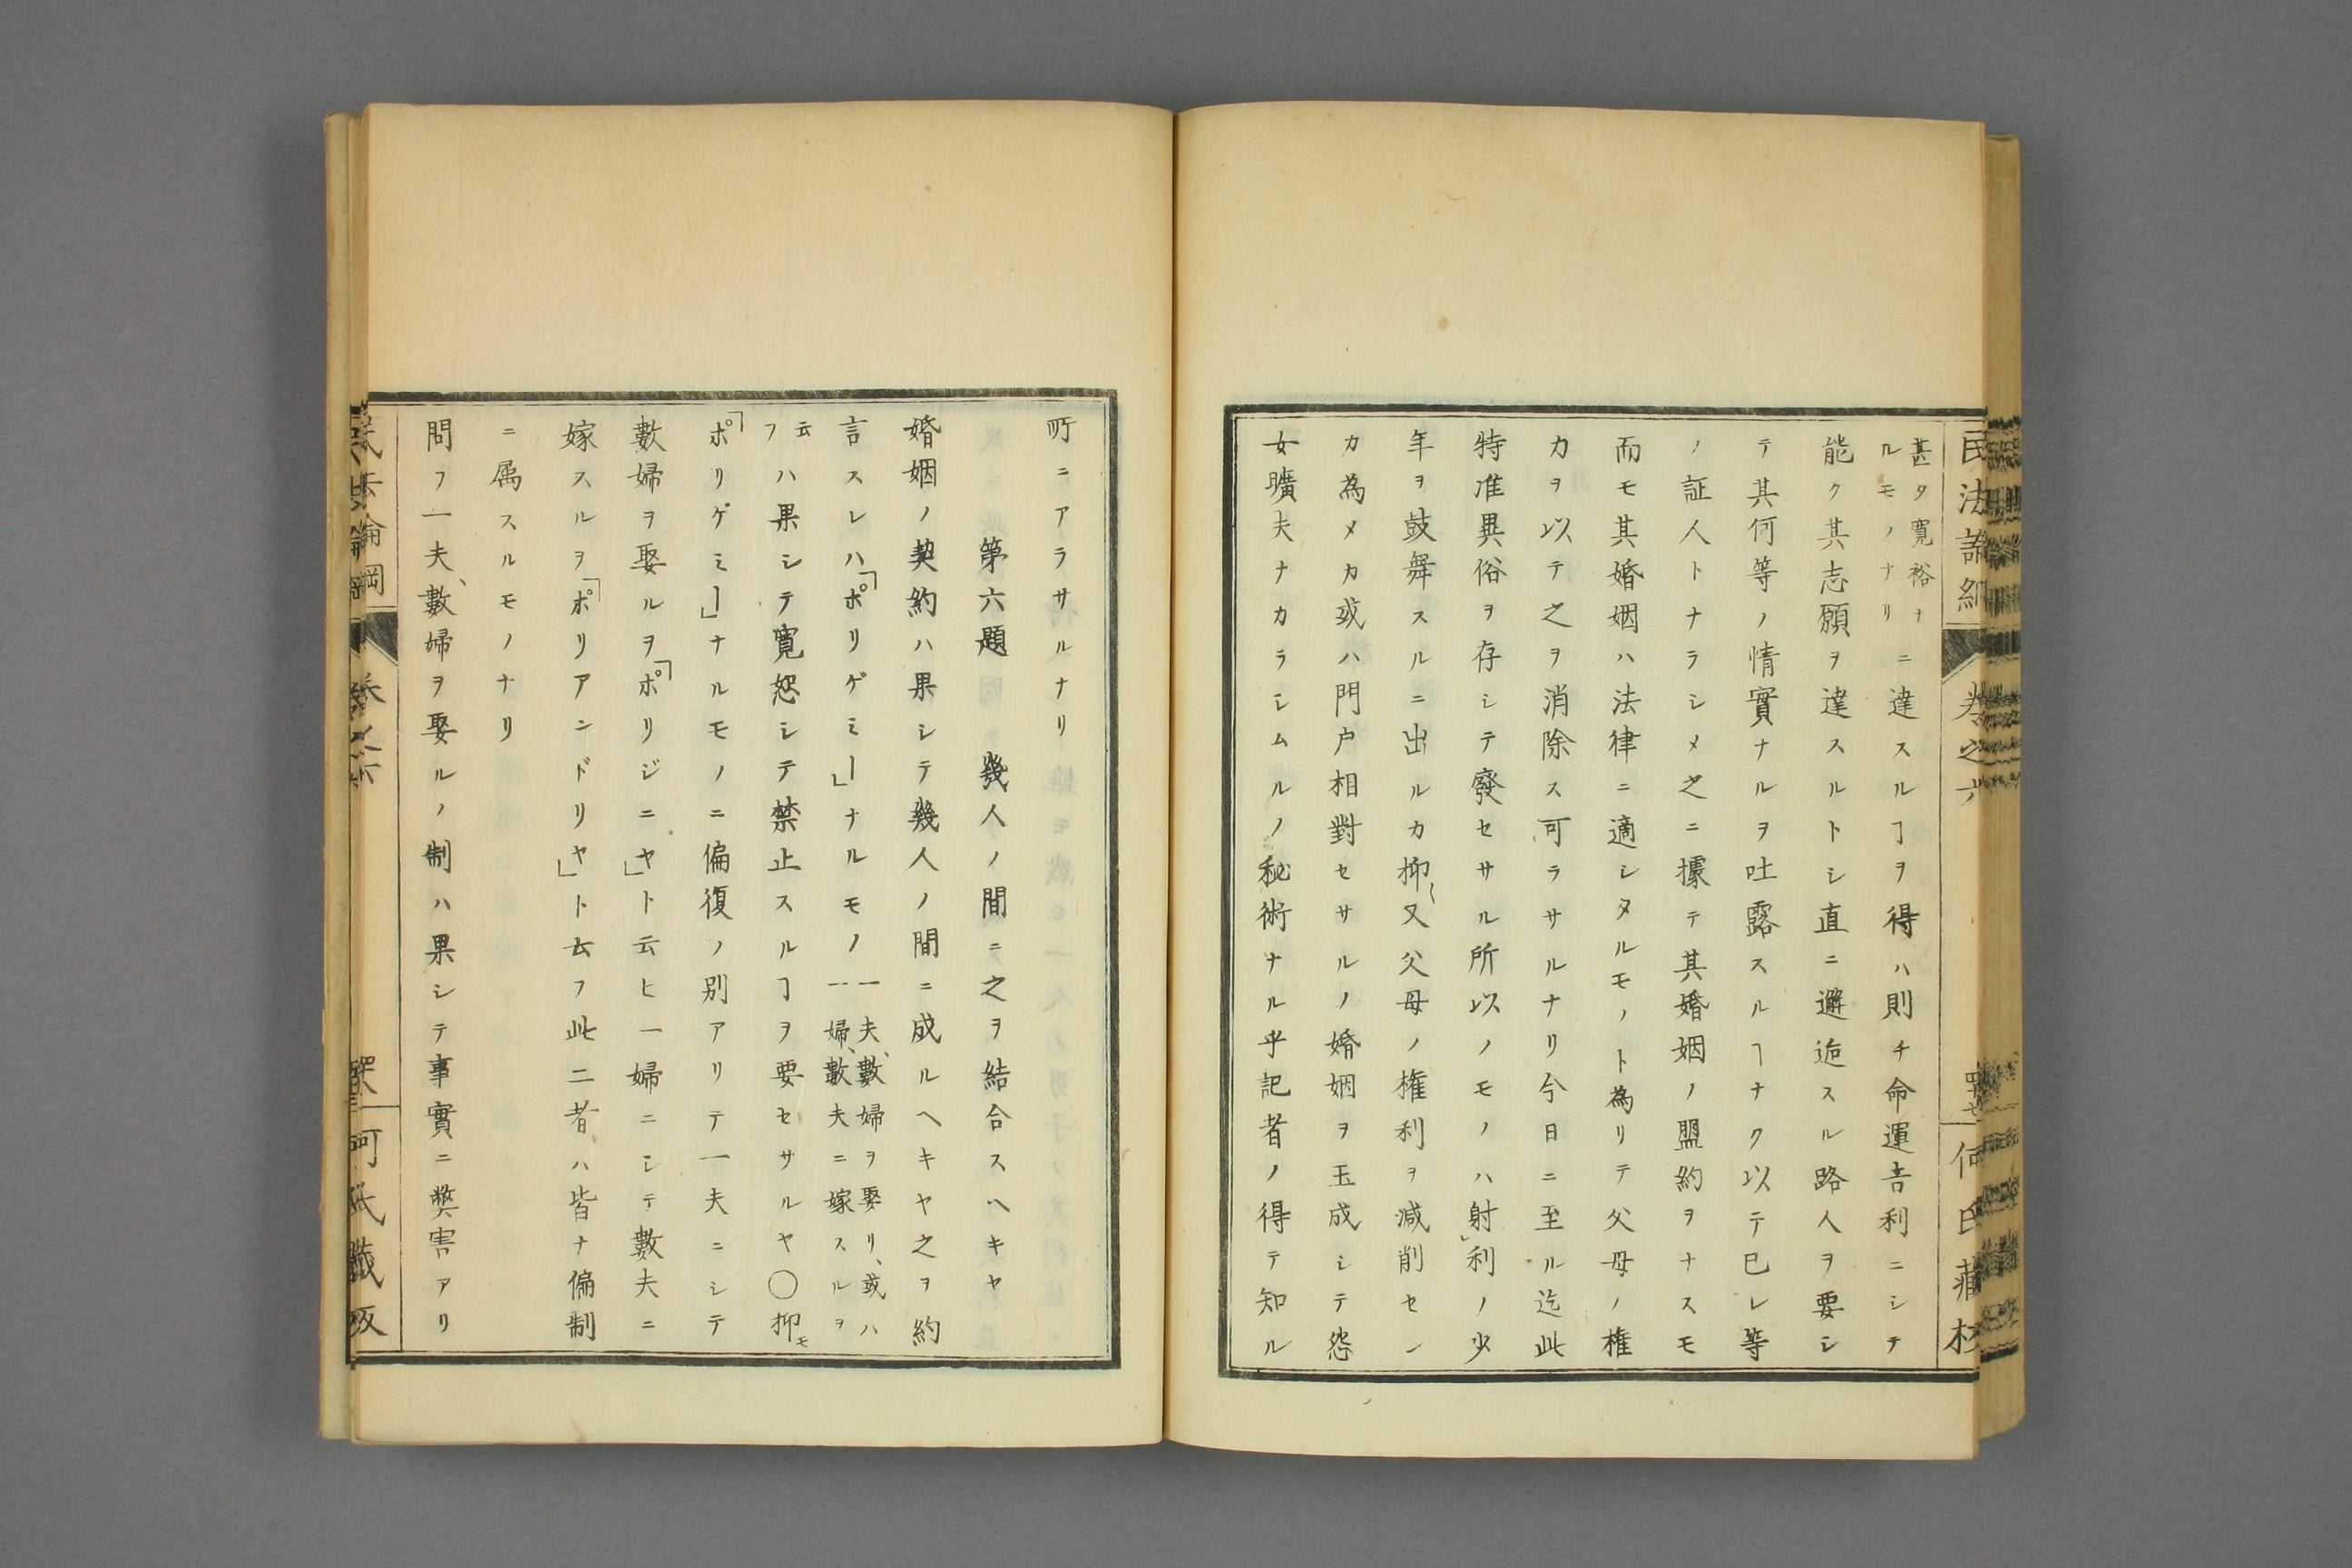 民法論綱
卷之六
四十七
何氏藏板
甚タ寬裕ナ
ルモノナリ
ニ達スルヿヲ得ハ則チ命運吉利ニシテ
能ク其志願ヲ達スルトシ直ニ邂逅スル路人ヲ要シ
テ其何等ノ情實ナルヲ吐露スルヿナク以テ已レ等
ノ証人トナラシメ之ニ據テ其婚姻ノ盟約ヲナスモ
而モ其婚姻ハ法律ニ適シタルモノト為リテ父母ノ権
力ヲ以テ之ヲ消除ス可ラサルナリ今日ニ至ル迄此
特准異俗ヲ存シテ發セサル所以ノモノハ射利ノ少
年ヲ鼓舞スルニ出ルカ抑〻又父母ノ権利ヲ減削セン
カ為メカ或ハ門戸相對セサルノ婚姻ヲ玉成シテ怨
女曠夫ナカラシムルノ秘術ナル乎記者ノ得テ知ル
所ニアラサルナリ
第六題 幾人ノ間ニテ之ヲ結合スヘキヤ
婚姻ノ契約ハ果シテ幾人ノ間ニ成ルヘキヤ之ヲ約
言スレハ「ポリゲミー」ナルモノ
一夫、數婦ヲ娶リ、或ハ
一婦、數夫ニ嫁スルヲ
云フ
ハ果シテ寬恕シテ禁止スルヿヲ要セサルヤ〇抑モ
「ポリゲミー」ナルモノニ偏復ノ別アリテ一夫ニシテ
數婦ヲ娶ルヲ「ポリジニヤ」ト云ヒ一婦ニシテ數夫ニ
嫁スルヲ「ポリアンドリヤ」ト云フ此二者ハ皆ナ偏制
ニ属スルモノナリ
問フ一夫、數婦ヲ娶ルノ制ハ果シテ事實ニ弊害アリ